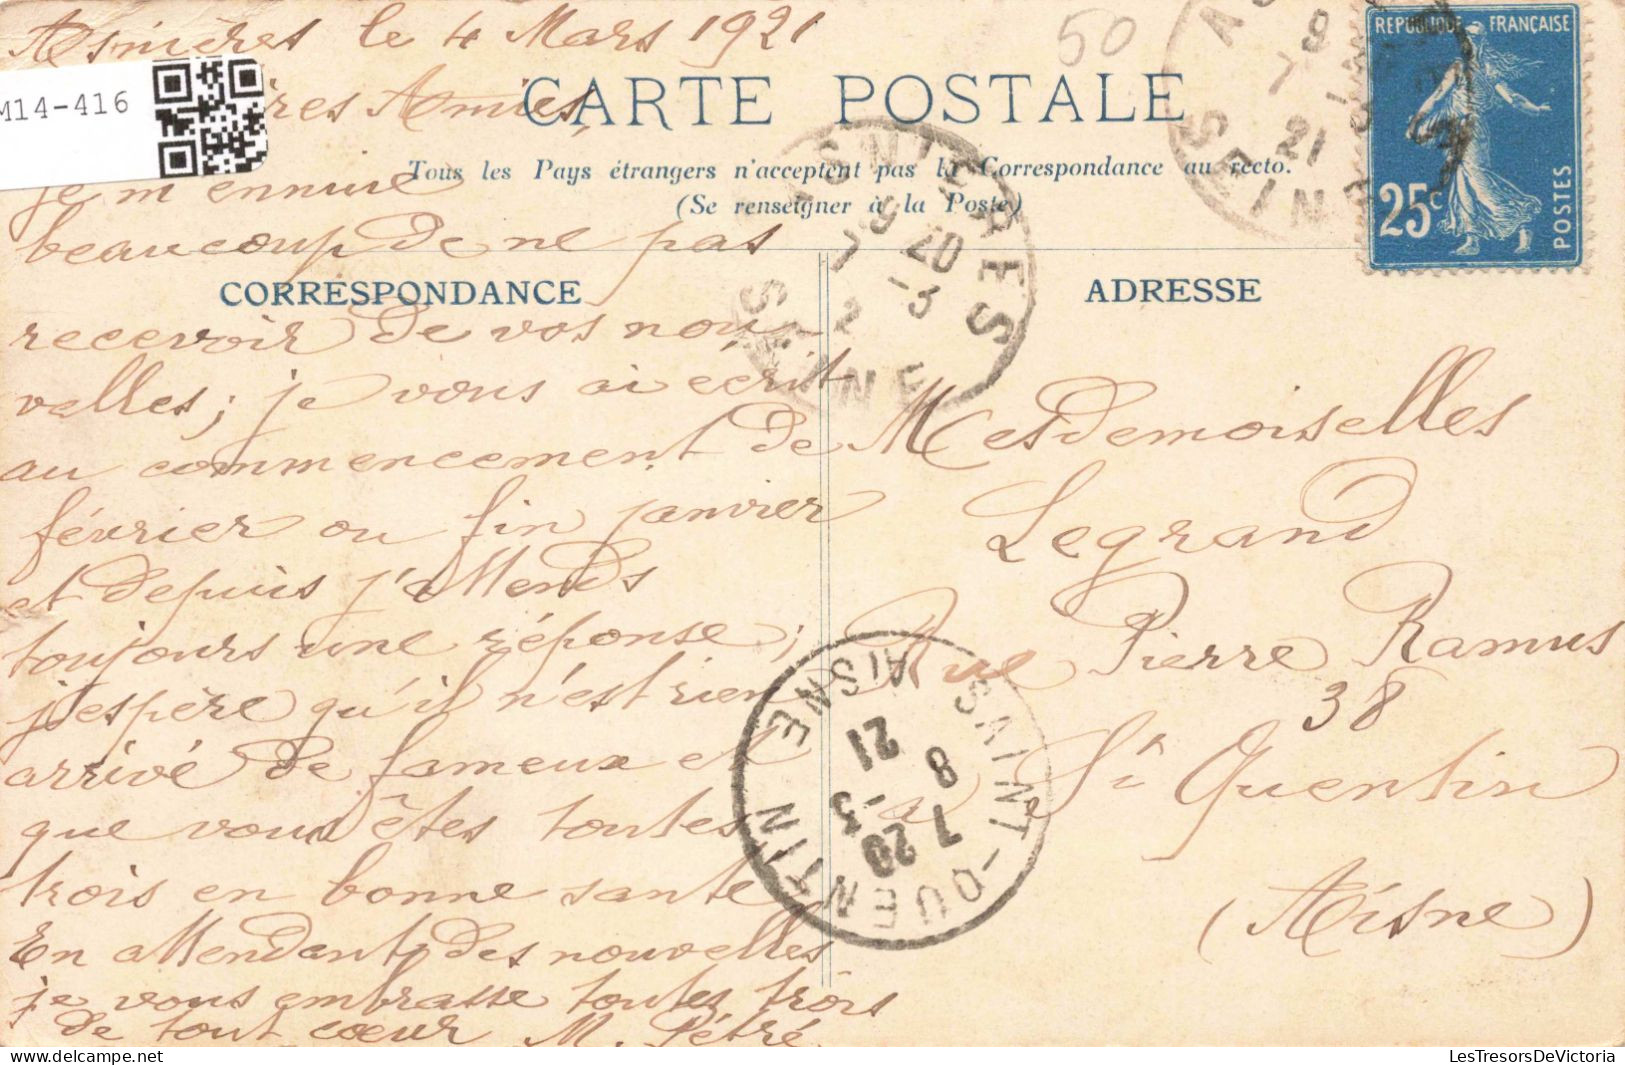 Asnières le 4 Mars 1921
50
M14-416
res Amies,
CARTE POSTALE
Tous les Pays étrangers n'acceptent pas la Correspondance au recto.
(Se renseigner à la Poste)
REPUBLIQUE FRANÇAISE
25c
POSTES
ASNIERES
SEINE
9 20
7 -3
SEINE
21
CORRESPONDANCE
je m'ennuie
beaucoup de ne pas
recevoir de vos nou
velles; je vous ai ecrit
au commencement de
février ou fin janvier
et depuis j'attends
toujours une réponse;
j'espère qu'il n'est rien
arrivé de fameux et
que vous êtes toutes
trois en bonne santé
En attendant des nouvelles
je vous embrasse toutes trois
de tout coeur M. Pétré
ADRESSE
Mesdemoiselles
Legrand
Rue Pierre Ramus
38
à St Quentin
(Aisne)
SAINT-QUENTIN
AISNE
7 20
8 -3
21
LesTresorsDeVictoria